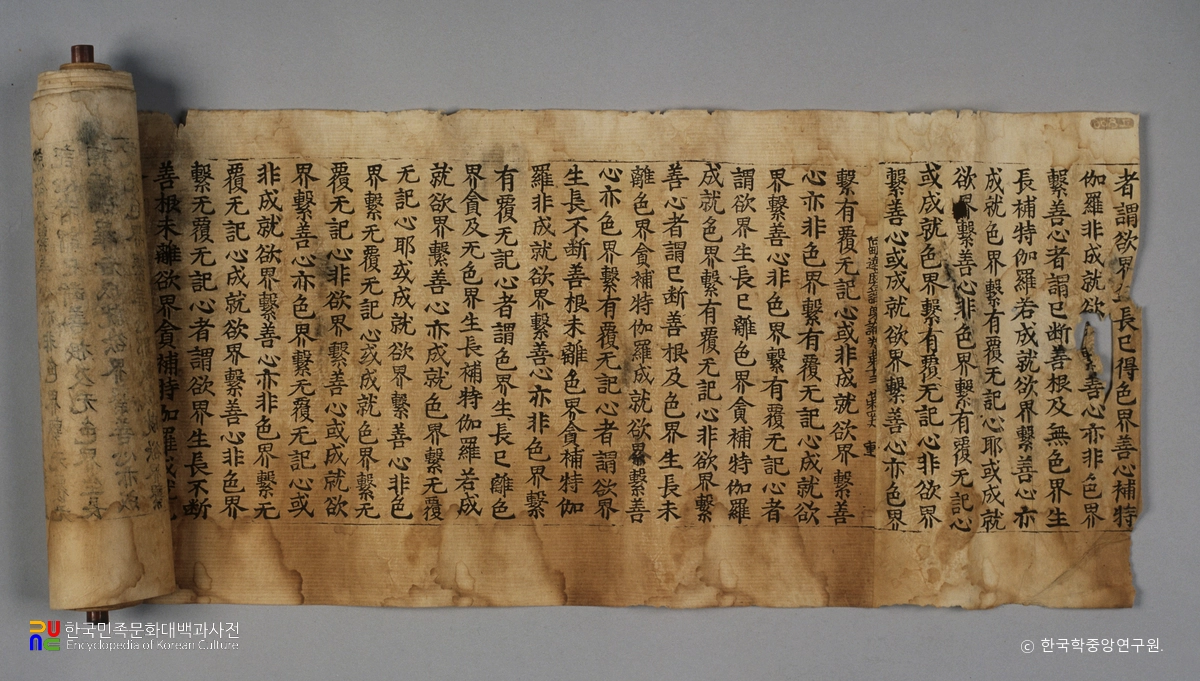 者謂欲界長巳得色界善心補特
伽羅非成就欲善心亦非色界
繫善心者謂巳断善根及無色界生
長補特伽羅若成就欲界繫善心亦
成就色界繫有覆无記心耶或成就
欲界繫善心非色界繫有覆无記心
或成就色界繫有覆无記心非欲界
繫善心或成就欲界繫善心亦色界
繫有覆无記心或非成就欲界繫善
心亦非色界繫有覆无記心成就欲
界繫善心非色界繫有覆无記心者
謂欲界生長巳離色界貪補特伽羅
成就色界繫有覆无記心非欲界繫
善心者謂巳断善根及色界生長未
離色界貪補特伽羅成就欲界繫善
心亦色界繫有覆无記心者謂欲界
生長不断善根未離色界貪補特伽
羅非成就欲界繫善心亦非色界繫
有覆无記心者謂色界生長巳離色
界貪及无色界生長補特伽羅若成
就欲界繫善心亦成就色界繫无覆
无記心耶或成就欲界繫善心非色
界繫无覆无記心或成就色界繫无
覆无記心非欲界繫善心或成就欲
界繫善心亦色界繫无覆无記心或
非成就欲界繫善心亦非色界繫无
覆无記心成就欲界繫善心非色界
繫无覆无記心者謂欲界生長不断
善根未離欲界貪補特伽羅成就
한국민족문화대백과사전
Encyclopedia of Korean Culture
© 한국학중앙연구원.